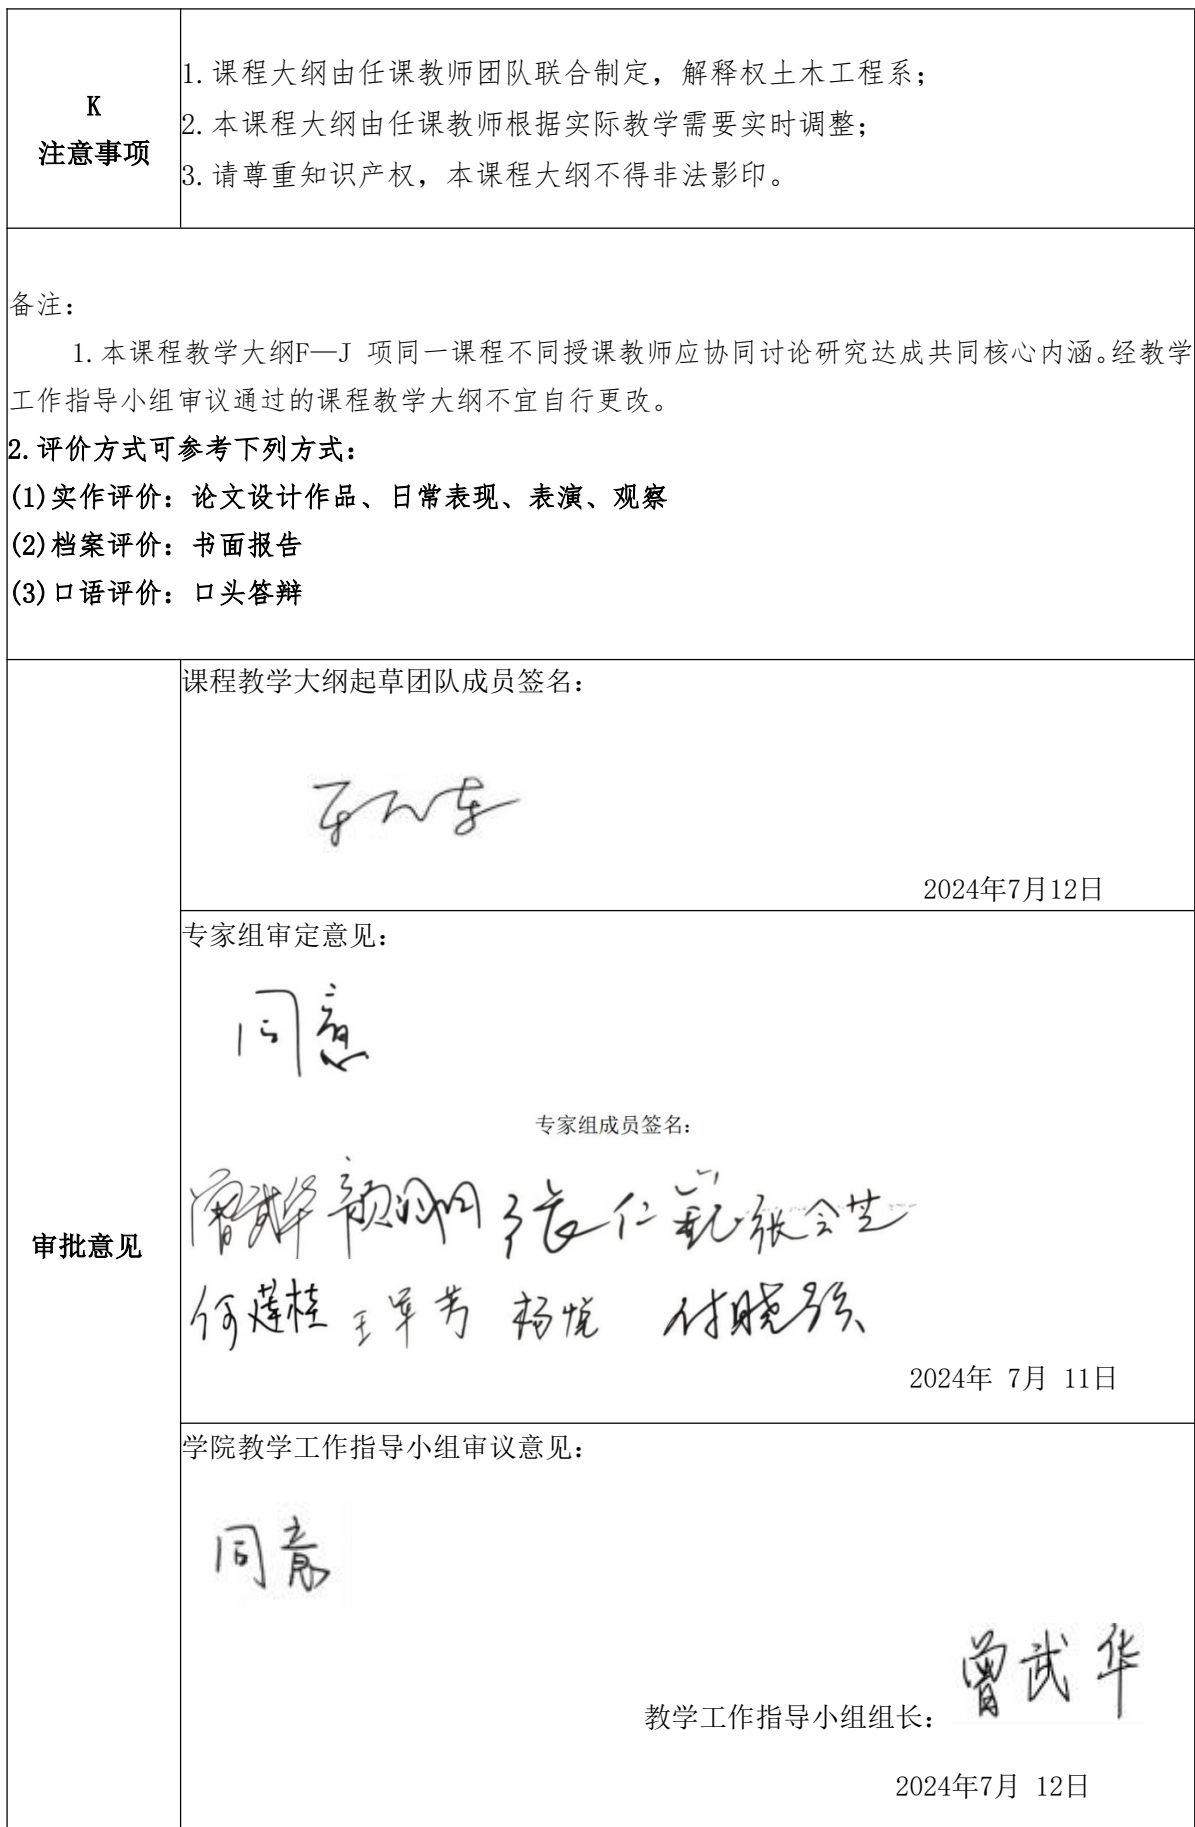 K
注意事项
1.课程大纲由任课教师团队联合制定，解释权土木工程系；
2.本课程大纲由任课教师根据实际教学需要实时调整；
3.请尊重知识产权，本课程大纲不得非法影印。
备注：
1.本课程教学大纲F—J 项同一课程不同授课教师应协同讨论研究达成共同核心内涵。经教学
工作指导小组审议通过的课程教学大纲不宜自行更改。
2.评价方式可参考下列方式：
(1)实作评价：论文设计作品、日常表现、表演、观察
(2)档案评价：书面报告
(3)口语评价：口头答辩
审批意见
课程教学大纲起草团队成员签名：
2024年7月12日
专家组审定意见：
同意
专家组成员签名：
曾武华 张 仁 张会芝
何莲桂 王军芳 杨悦 付晓强
2024年 7月 11日
学院教学工作指导小组审议意见：
同意
教学工作指导小组组长：曾武华
2024年7月 12日